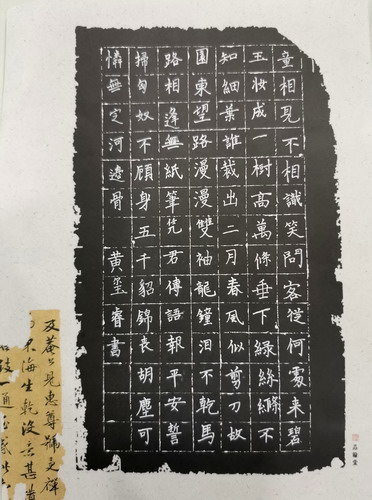 童相見不相識笑問客從何處来碧
玉妝成一樹高萬條垂下綠絲縧不
知細葉誰裁出二月春風似剪刀故
園東望路漫漫雙袖龍鐘泪不乾馬
路相逢無紙筆凭君傳語報平安誓
掃匈奴不顧身五千貂錦丧胡塵可
憐無定河邊骨 黄玺睿書